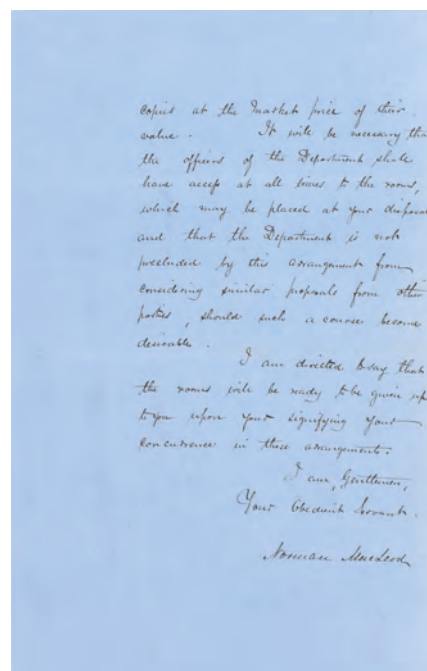 copies at the Market price of their
value. It will be necessary that
the officers of the Department shall
have access at all times to the rooms,
which may be placed at your disposal
and that the Department is not
precluded by this arrangement from
considering similar proposals from other
parties, should such a course become
desirable.
I am directed to say that
the rooms will be ready to be given up
to you upon your signifying your
concurrence in these arrangements.
I am, Gentlemen,
Your Obedient Servant.
Norman MacLeod